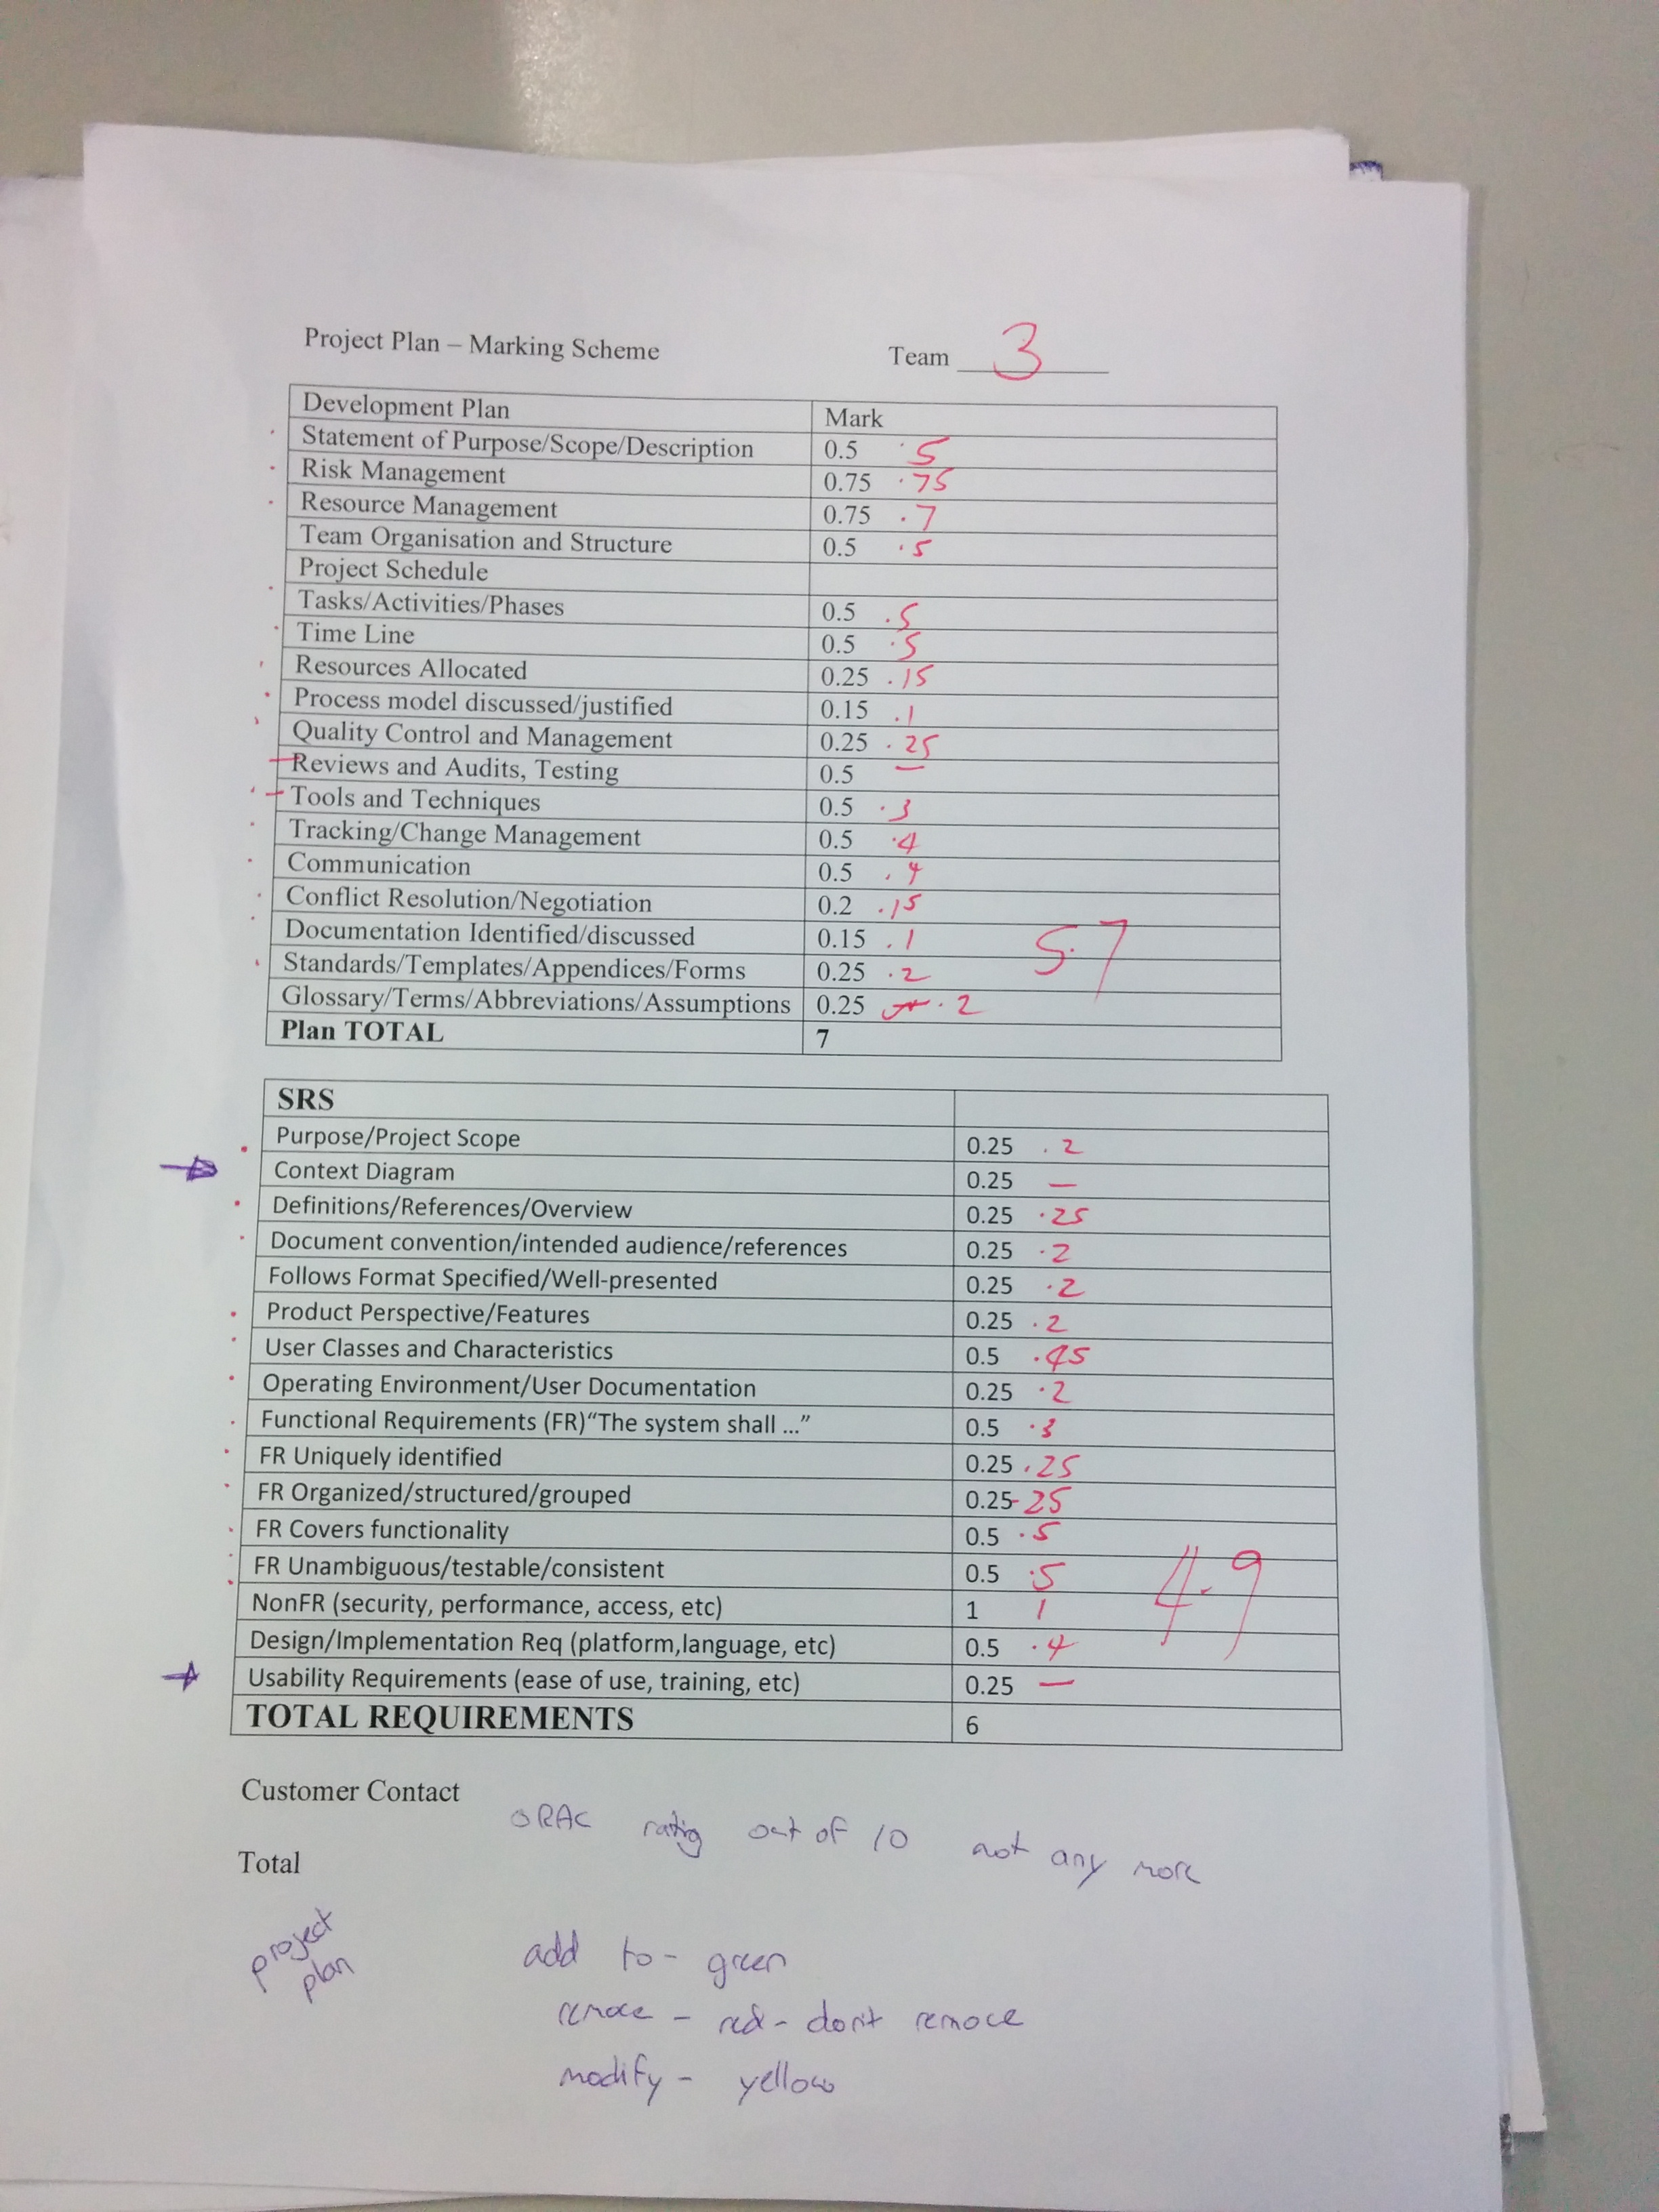 Project Plan – Marking Scheme Team 3
Development Plan Mark
Statement of Purpose/Scope/Description 0.5 .5
Risk Management 0.75 .75
Resource Management 0.75 .7
Team Organisation and Structure 0.5 .5
Project Schedule
Tasks/Activities/Phases 0.5 .5
Time Line 0.5 .5
Resources Allocated 0.25 .15
Process model discussed/justified 0.15 .1
Quality Control and Management 0.25 .25
Reviews and Audits, Testing 0.5 —
Tools and Techniques 0.5 .3
Tracking/Change Management 0.5 .4
Communication 0.5 .4
Conflict Resolution/Negotiation 0.2 .15
Documentation Identified/discussed 0.15 .1 5.7
Standards/Templates/Appendices/Forms 0.25 .2
Glossary/Terms/Abbreviations/Assumptions 0.25 .2
Plan TOTAL 7
SRS
Purpose/Project Scope 0.25 .2
Context Diagram 0.25 —
Definitions/References/Overview 0.25 .25
Document convention/intended audience/references 0.25 .2
Follows Format Specified/Well-presented 0.25 .2
Product Perspective/Features 0.25 .2
User Classes and Characteristics 0.5 .45
Operating Environment/User Documentation 0.25 .2
Functional Requirements (FR)“The system shall ...” 0.5 .3
FR Uniquely identified 0.25 .25
FR Organized/structured/grouped 0.25 .25
FR Covers functionality 0.5 .5
FR Unambiguous/testable/consistent 0.5 .5 4.9
NonFR (security, performance, access, etc) 1 1
Design/Implementation Req (platform,language, etc) 0.5 .4
Usability Requirements (ease of use, training, etc) 0.25 —
TOTAL REQUIREMENTS 6
Customer Contact
ORAC rating out of 10 not any more
Total
project
plan
add to - green
remove - red - don't remove
modify - yellow